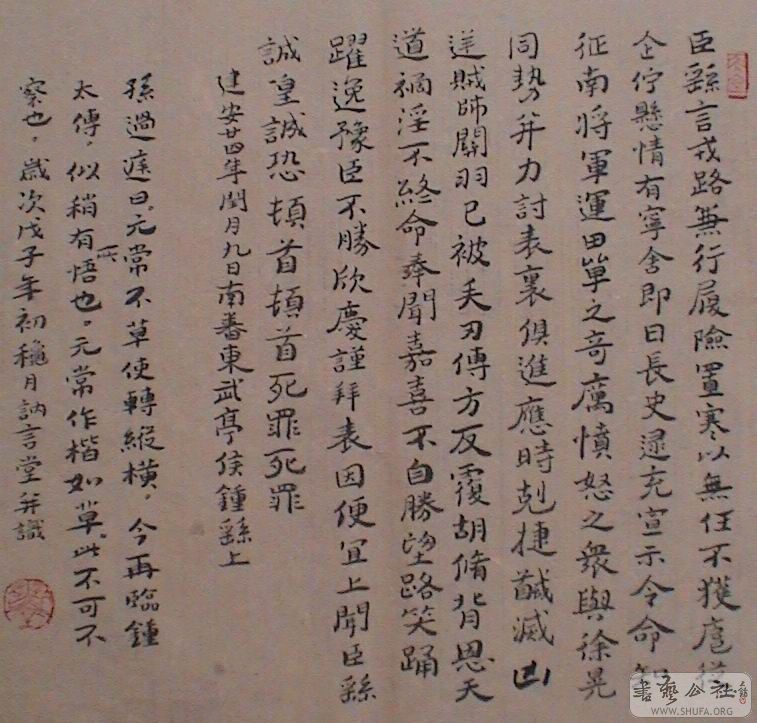 臣繇言戎路兼行履險冒寒以無任不獲扈從
企佇懸情有寧舍即日長史逯充宣示令命知
征南將軍運田單之奇厲憤怒之衆與徐晃
同勢并力討表裏俱進應時剋捷馘滅凶
逆賊帥關羽已被矢刃傅方反覆胡脩背恩天
道禍淫不終命奉聞嘉喜不自勝望路笑踊
躍逸豫臣不勝欣慶謹拜表因便宜上聞臣繇
誠皇誠恐頓首頓首死罪死罪
建安廿四年閏月九日南蕃東武亭侯鍾繇上
孫過庭曰元常不草使轉縱橫。今再臨鍾
太傅，似稍有所悟也。元常作楷如草。此不可不
察也，歲次戊子年初穐月訥言堂并識
書藝公社
WWW.SHUFA.ORG